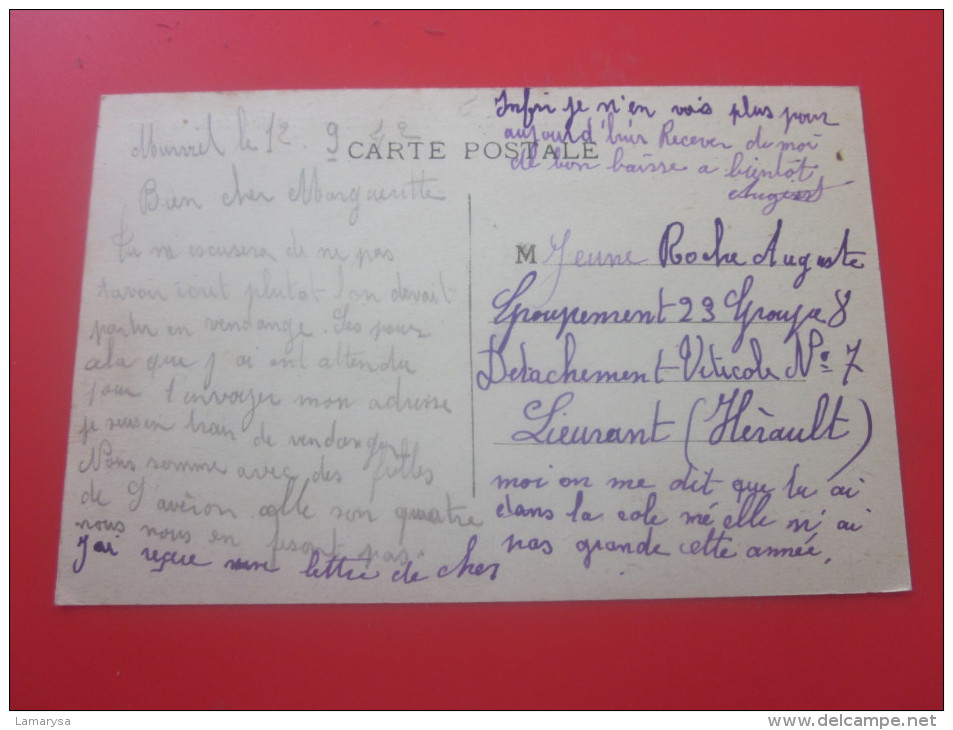 le 12 9 42
CARTE POSTALE
Bien cher Margueritte
Tu m'escusera de ne pas
t'avoir plutot l'on devait
partir en vendange. Ses pour
sela que j'ai attendu
pour t'envoyer mon adresse
je suis en train de vendanger
Nous somme avec des filles
de l'avèron elle son quatre
nous nous en fesont pas.
J'ai reçue une lettre de ches
moi on me dit que tu ai
dans la cole mé elle n'ai
pas grande cette année.
Infin je n'en vois plus pour
aujourd'huis Recever de moi
de bon baisse a bientôt
August
M Jeune Roche Auguste
Groupement 23 Groupe 8
Detachement Viticole No 7
Lieurant (Hèrault)
Lamarysa
www.delcampe.net